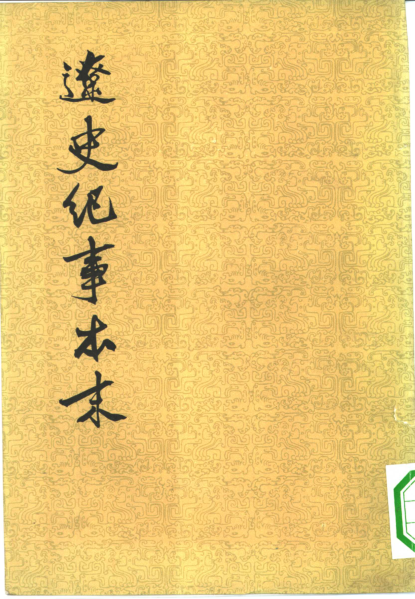 遼史纪事本末